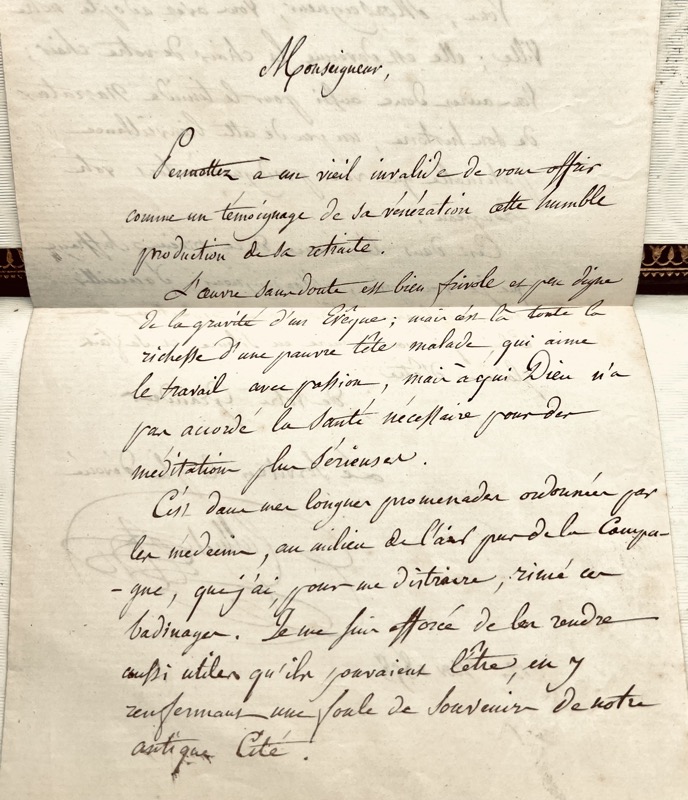 Monseigneur,
Permettez à un vieil invalide de vous offrir
comme un témoignage de sa vénération cette humble
production de sa retraite.
L'œuvre sans doute est bien frivole et peu digne
de la gravité d'un Evêque ; mais c'est là toute la
richesse d'une pauvre tête malade qui aime
le travail avec passion, mais à qui Dieu n'a
pas accordé la santé nécessaire pour des
méditations plus sérieuses.
C'est dans mes longues promenades ordonnées par
les médecins, au milieu de l'air pur de la Campa-
-gne, que j'ai, pour me distraire, rimé ces
badinages. Je me suis efforcé de les rendre
aussi utiles qu'ils pouvaient l'être, en y
renfermant une foule de souvenirs de notre
antique Cité.